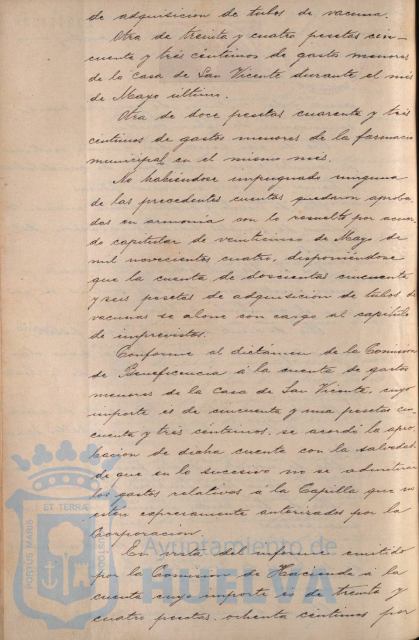 de adquisicion de tubos de vacuna.
Otra de treinta y cuatro pesetas cin-
cuenta y tres céntimos de gastos menores
de la Casa de San Vicente durante el mes
de Mayo último.
Otra de doce pesetas cuarenta y tres
céntimos de gastos menores de la farmacia
municipal en el mismo mes.
No habiéndose impugnado ninguna
de las precedentes cuentas quedaron aproba
das en armonia con lo resuelto por acuer
do capitular de veinticinco de Mayo de
mil novecientos cuatro, disponiéndose
que la cuenta de doscientas cincuenta
y seis pesetas de adquisicion de tubos de
vacunas se abone con cargo al capítulo
de imprevistos.
Conforme al dictámen de la Comision
de Beneficencia á la cuenta de gastos
menores de la Casa de San Vicente, cuyo
importe es de cincuenta y una pesetas cin
cuenta y tres céntimos, se acordó la apro
bacion de dicha cuenta con la salvedad
de que en lo sucesivo no se admitirán
los gastos relativos á la Capilla que no
estén expresamente autorizados por la
Corporacion.
En vista del informe emitido
por la Comision de Hacienda á la
cuenta cuyo importe es de treinta y
cuatro pesetas ochenta céntimos por
PORTUS MARIS
ET TERRÆ
CUSTODIA
Ayuntamiento de
HUELVA